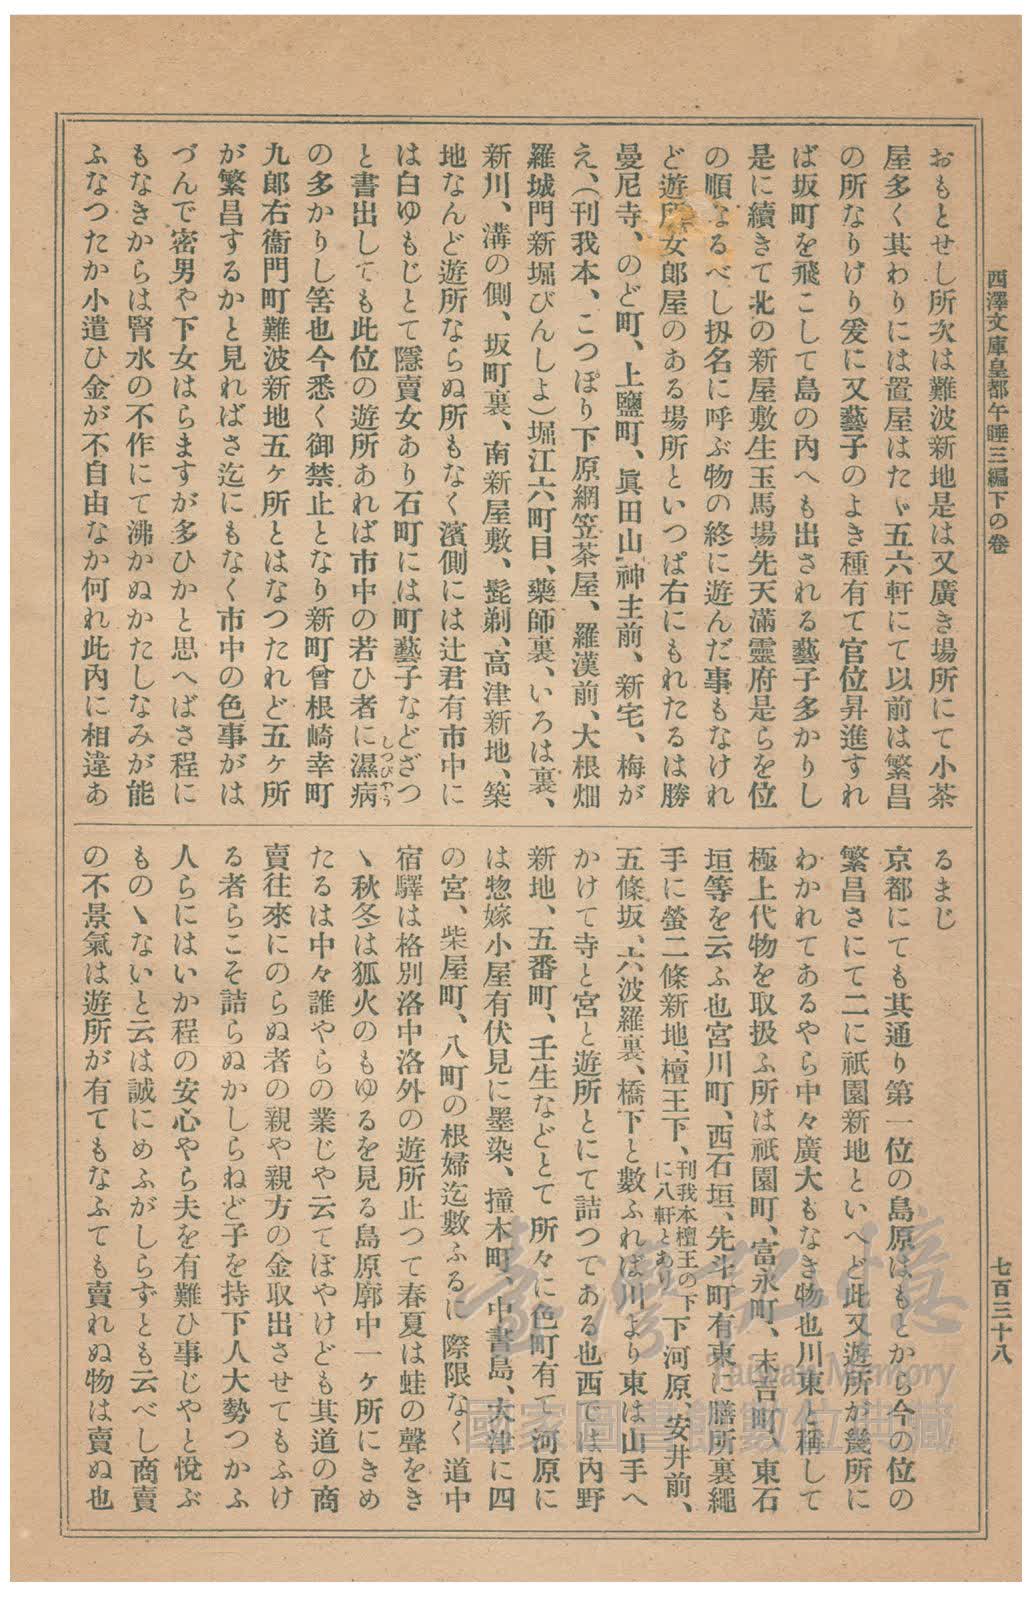 西澤文庫皇都午睡三編下の卷
七百三十八
おもとせし所次は難波新地是は又廣き場所にて小茶
屋多く其わりには置屋はたゞ五六軒にて以前は繁昌
の所なりけり爰に又藝子のよき種有て官位昇進すれ
ば坂町を飛こして島の內へも出される藝子多かりし
是に續きて北の新屋敷生玉馬場先天滿靈府是らを位
の順なるべし扨名に呼ぶ物の終に遊んだ事もなけれ
ど遊所女郞屋のある場所といつぱ右にもれたるは勝
曼尼寺、のど町、上鹽町、眞田山神主前、新宅、梅が
え、(刊我本、こつぽり下原網笠茶屋、羅漢前、大根畑
羅城門新堀びんしよ)堀江六町目、藥師裏、いろは裏、
新川、溝の側、坂町裏、南新屋敷、髭剃、高津新地、築
地なんど遊所ならぬ所もなく濱側には辻君有市中に
は白ゆもじとて隱賣女あり石町には町藝子などざつ
と書出しても此位の遊所あれば市中の若ひ者に濕病
しつびやう
の多かりし筈也今悉く御禁止となり新町曾根崎幸町
九郞右衞門町難波新地五ヶ所とはなつたれど五ヶ所
が繁昌するかと見ればさ迄にもなく市中の色事がは
づんで密男や下女はらますが多ひかと思へばさ程に
もなきからは腎水の不作にて沸かぬかたしなみが能
ふなつたか小遣ひ金が不自由なか何れ此內に相違あ
るまじ
京都にても其通り第一位の島原はもとから今の位の
繁昌さにて二に祇園新地といへど此又遊所が幾所に
わかれてあるやら中々廣大もなき物也川東と稱して
極上代物を取扱ふ所は祇園町、富永町、末吉町、東石
垣等を云ふ也宮川町、西石垣、先斗町有東に膳所裏繩
手に螢二條新地、檀王下、刊我本檀王の下に八軒とあり下河原、安井前、
五條坂、六波羅裏、橋下と數ふれば川より東は山手へ
かけて寺と宮と遊所とにて詰つてある也西では內野
新地、五番町、壬生などとて所々に色町有て河原に
は惣嫁小屋有伏見に墨染、撞木町、中書島、大津に四
の宮、柴屋町、八町の根婦迄數ふるに際限なく道中
宿驛は格別洛中洛外の遊所止つて春夏は蛙の聲をき
ゝ秋冬は狐火のもゆるを見る島原廓中一ヶ所にきめ
たるは中々誰やらの業じや云てぼやけども其道の商
賣往來にのらぬ者の親や親方の金取出させてもふけ
る者らこそ詰らぬかしらねど子を持下人大勢つかふ
人らにはいか程の安心やら夫を有難ひ事じやと悅ぶ
ものゝないと云は誠にめふがしらずとも云べし商賣
の不景氣は遊所が有てもなふても賣れぬ物は賣ぬ也
臺灣記憶
Taiwan Memory
國家圖書館數位典藏